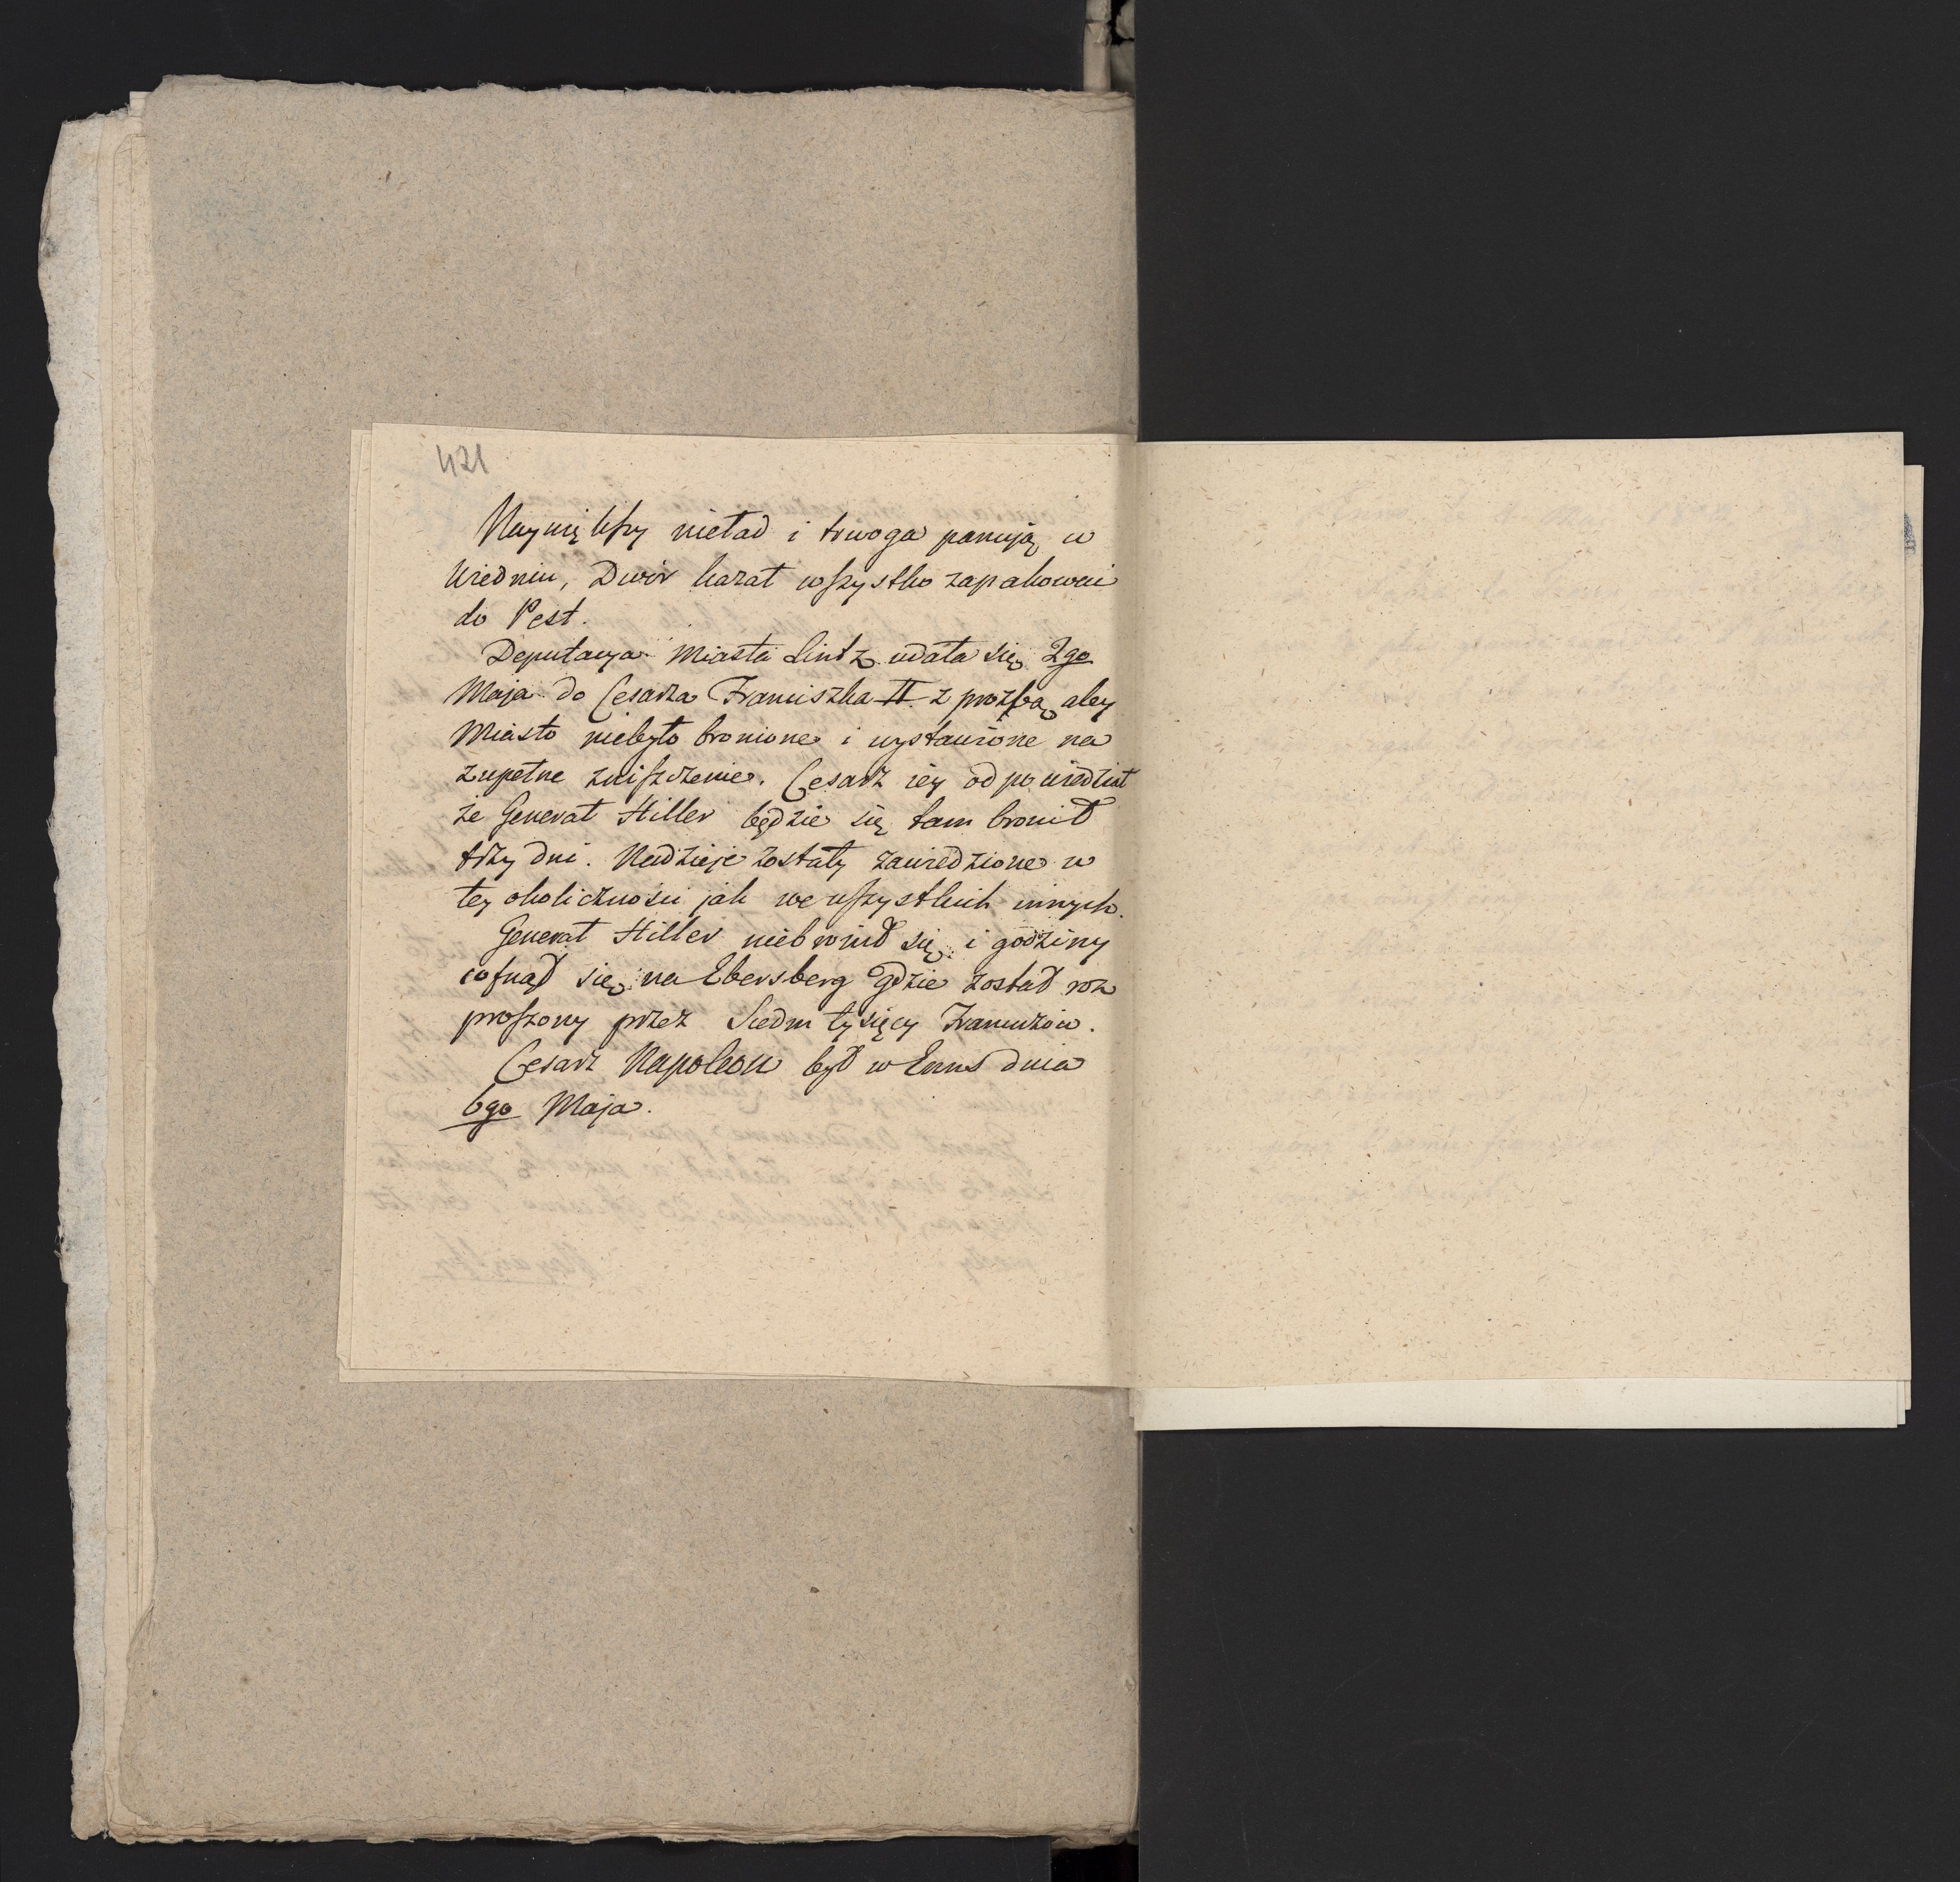 421
Naywiększy nieład i trwoga panują w
Wiedniu, Dwór kazał wszystko zapakować
do Pest.
Deputacya Miasta Lintz udała się 2go
Maja do Cesarza Franciszka II z proźbą aby
Miasto niebyło bronione i wystawione na
zupełne zniszczenie. Cesarz iey odpowiedział
że Generał Hiller będzie się tam bronił
trzy dni. Nadzieje zostały zawiedzione w
tey okoliczności jak we wszystkich innych.
Generał Hiller niebronił się i godziny
cofnął się na Ebersberg gdzie został roz
proszony przez Siedm tysięcy Francuzów.
Cesarz Napoleon był w Enns dnia
6go Maja.